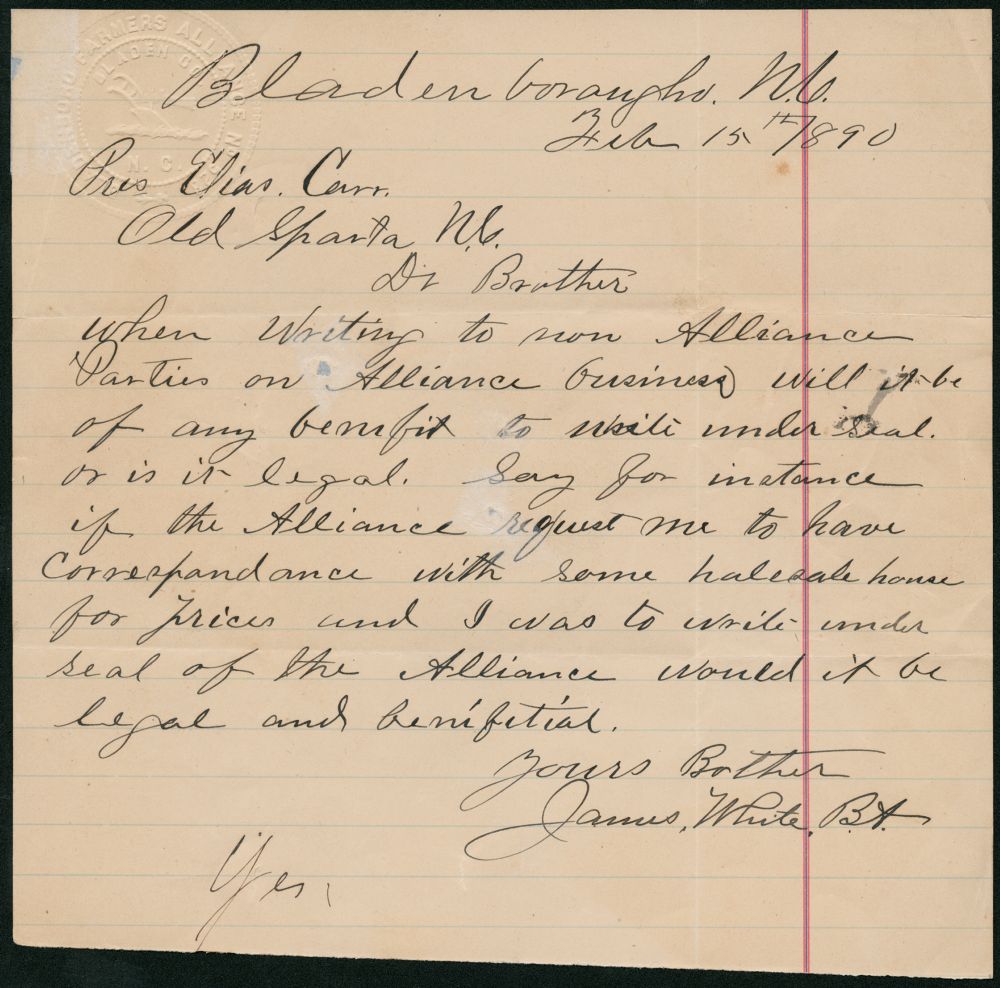 FARMERS ALLIANCE NO
BLADEN CO
N. C.
Bladenboraugho. N.C.
Feb 15th 1890
Pres Elias. Carr.
Old Sparta N.C.
Dr Brother
when Writing to non Alliance
Parties on Alliance business will it be
of any benifit to write under seal.
or is it legal. Say for instance
if the Alliance request me to have
Correspondance with some halesale house
for prices and I was to write under
seal of the Alliance would it be
legal and benifitial.
Yours Bother
James, White, B.A.
Yes.